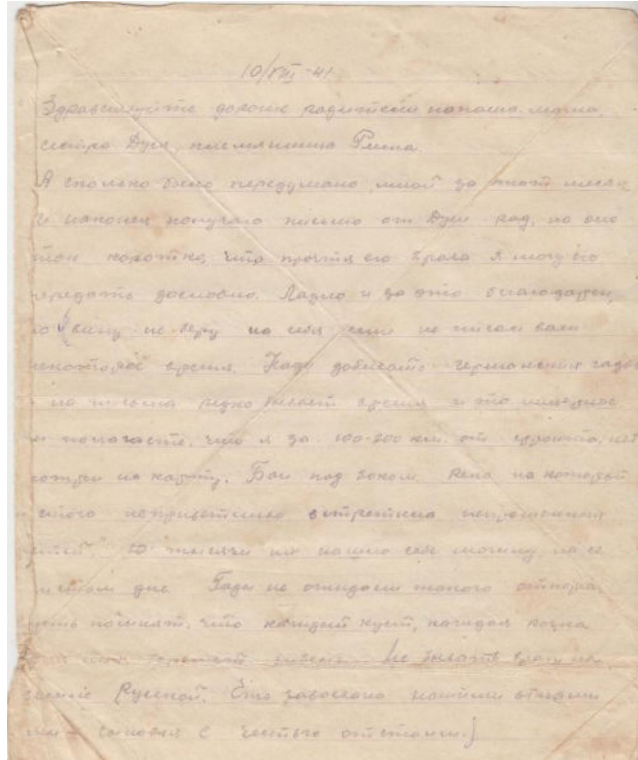 10/VIII-41
Здравствуйте дорогие родители папаша, мама,
сестра Дуся, племянница Римма.
А сколько было передумано мной за этот месяц
и наконец получаю письмо от Дуси рад, но оно
так коротко, что прочтя его враз я могу его
передать дословно. Ладно и за это благодарен,
но вину не беру на себя если не писал вам
некоторое время. Надо добивать германских гадов
на письма редко бывает время и то
полагаете, что я за 100-200 км. от фронта, нет
на карту. Бои под боком. Река на которой
неприветливо встретила непрошенных
тысячи их нашло себе могилу на её
дне. Гады не ожидали такого отпора,
помнят, что каждый куст, каждая кочка
не бывать врагу на
земле Русской. Его завоевано нашими отцами
мы сыновья с честью отстоим.